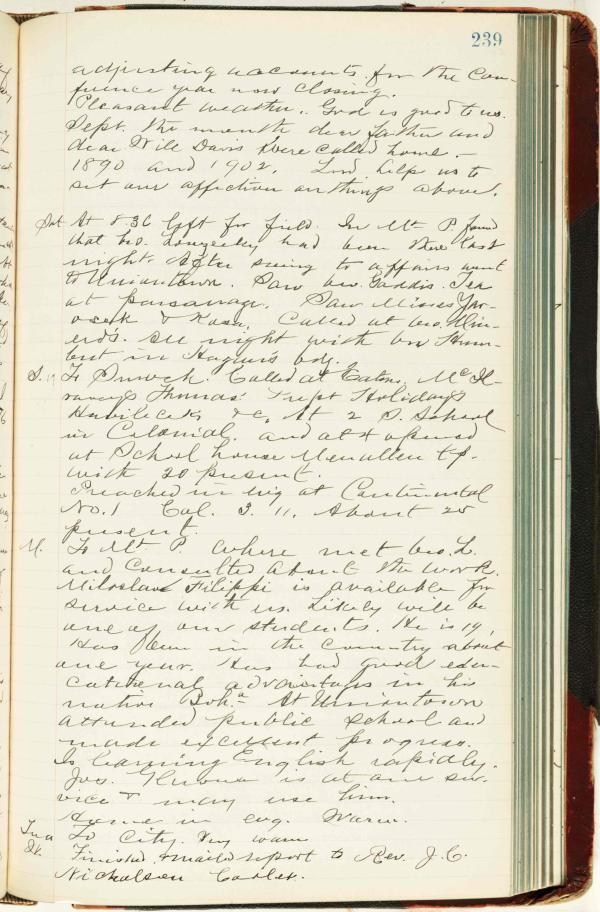 239
adjusting accounts for the Con-
ference year now closing.
Pleasant weather. God is good to us.
Sept. the month dear father and
dear Will Davis were called home. —
1890 and 1902. Lord help us to
set our affection on things above.
Sat At 8.36 left for field. In Mt. P. found
that bro. had been there last
night. After seeing to affairs went
to Uniontown. Saw bro. Gaddis. Tea
at parsonage. Saw Misses
& Called at bro.
All night with bro
in bdg.
S. 19 To Called at Mc
Thomas' Holidays
&c. At 2 S. School
in Colonial. and at 4 opened
at School house Menallen tp.
with 20 present.
Preached in evg at Continental
No. 1 Col. 3. 11. About 25
present.
M. To Mt P. where met bro. L.
and consulted about the work.
Miloslav Filippi is available for
service with us. Likely will be
one of our students. He is 19,
Has been in the country about
one year. Has had good edu-
cational advantages in his
native Boha. At Uniontown
attended public school and
made excellent progress.
Is learning English rapidly.
Jos. is at our ser-
vice & may use him.
Home in evg. Warm.
Tu To City. Very warm
Finished & mailed report to Rev. J. C.
Nicholson